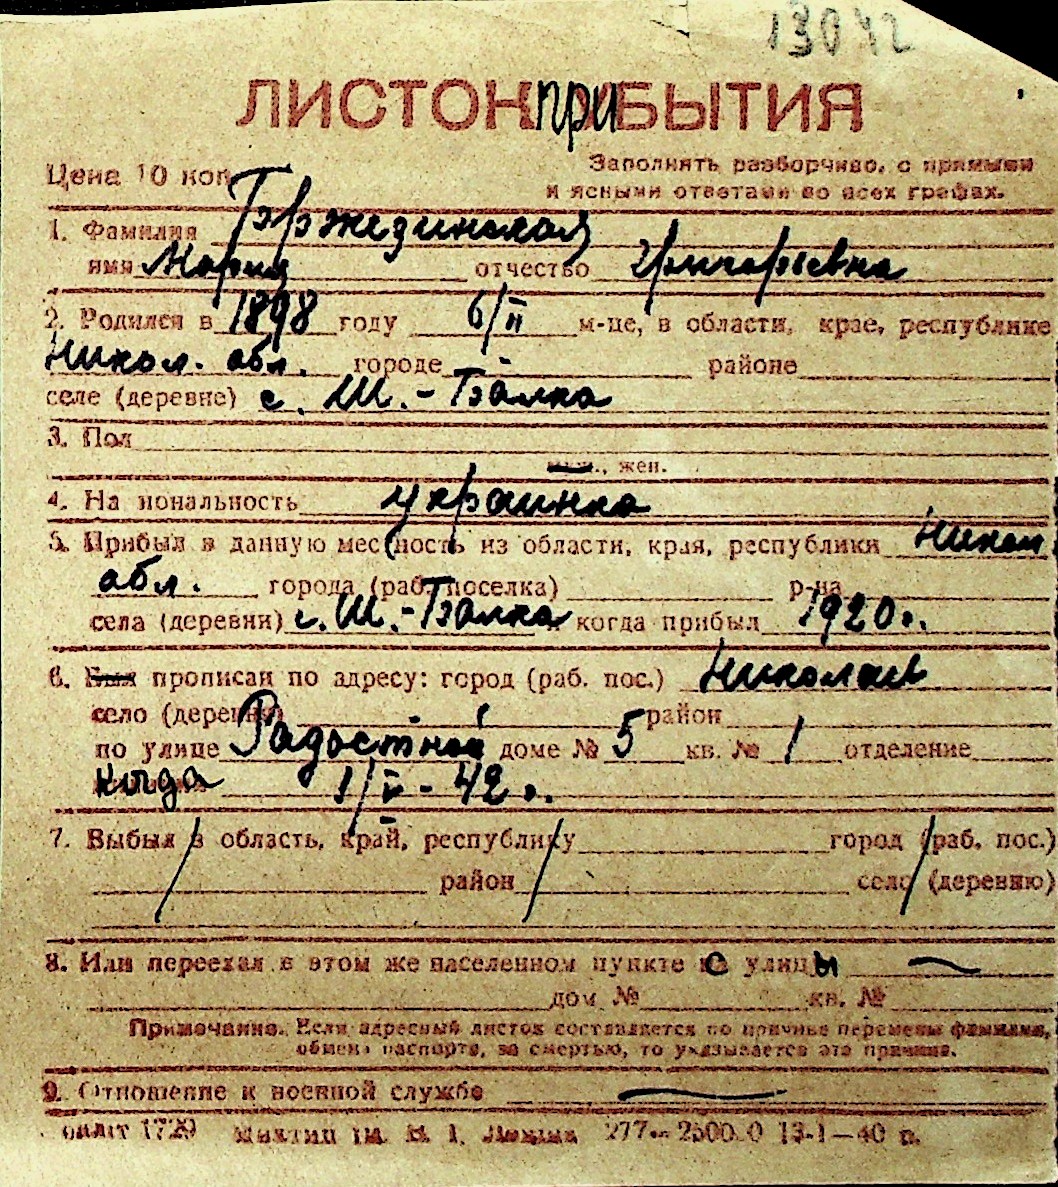 13042
ЛИСТОК ПРИБЫТИЯ
Цена 10 коп.
Заполнять разборчиво, с прямыми
и ясными ответами во всех графах.
1. Фамилия Бржезинская
имя Мария отчество Григорьевна
2. Родился в 1898 году 6/II м-це, в области, крае, республике
Никол. обл. городе - районе
селе (деревне) с. Ш.-Балка
3. Пол
муж., жен.
4. Национальность украинка
5. Прибыл в данную местность из области, края, республики Никол.
обл. города (раб. поселка) р-на
села (деревни) с. Ш.-Балка когда прибыл 1920 г.
6. Был прописан по адресу: город (раб. пос.) Николаев
село (деревня) - район
по улице Радостной доме № 5 кв. № 1 отделение
когда 1/V - 42 г.
7. Выбыл в область, край, республику город (раб. пос.)
район село (деревню)
8. Или переехал в этом же населенном пункте с улицы —
дом № кв. №
Примечание. Если адресный листок составляется по причине перемены фамилии,
обмена паспорта, за смертью, то указывается эта причина.
9. Отношение к военной службе —
1729 им. В. И. Ленина 13-1—40 г.